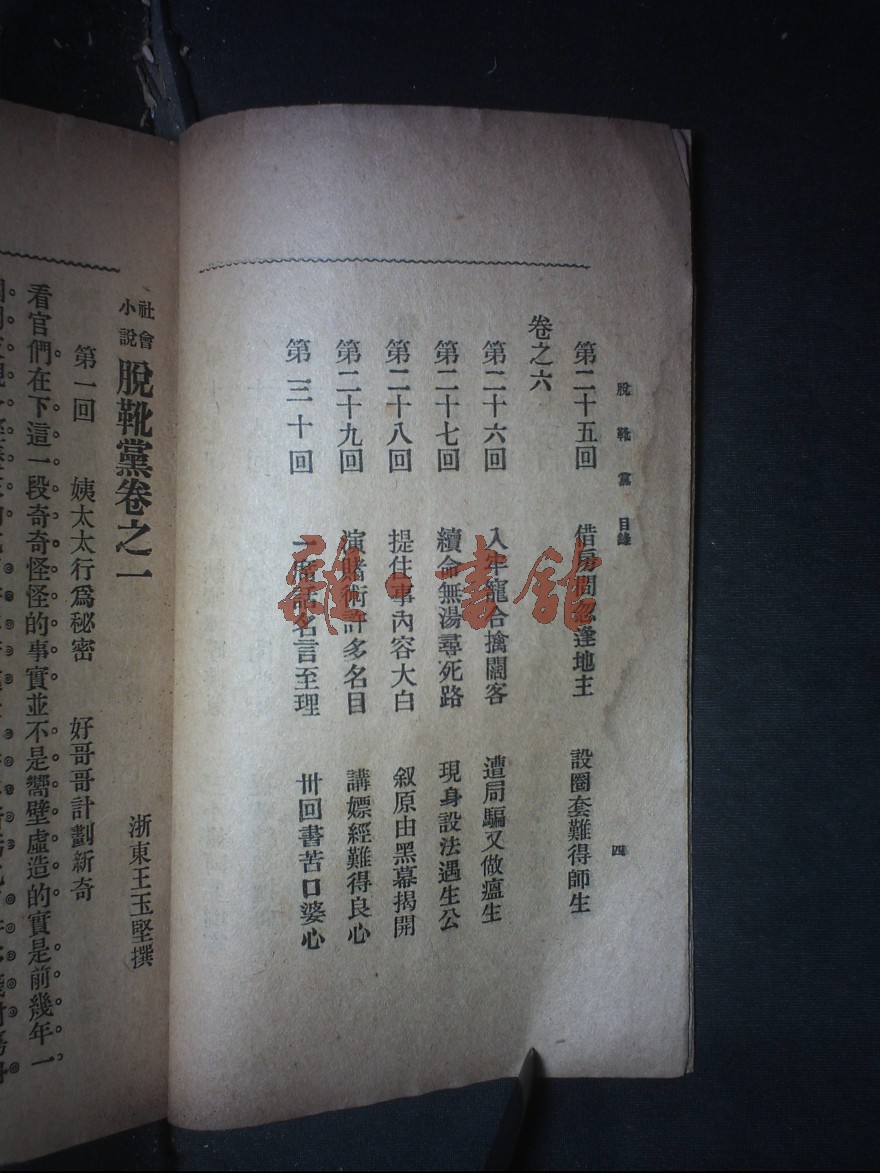 脫靴黨 目錄 四
第二十五回 借房間忽逢地主 設圈套難得師生
卷之六
第二十六回 入牢籠合擒闊客 遭局騙又做瘟生
第二十七回 續命無湯尋死路 現身設法遇生公
第二十八回 提往事內容大白 叙原由黑幕揭開
第二十九回 演賭術許多名目 講嫖經難得良心
第三十回 一席話名言至理 卅回書苦口婆心
雜·書館
社會小說 脫靴黨卷之一
浙東王玉堅撰
第一回 姨太太行爲秘密 好哥哥計劃新奇
看官們在下這一段奇奇怪怪的事實並不是嚮壁虛造的實是前幾年一